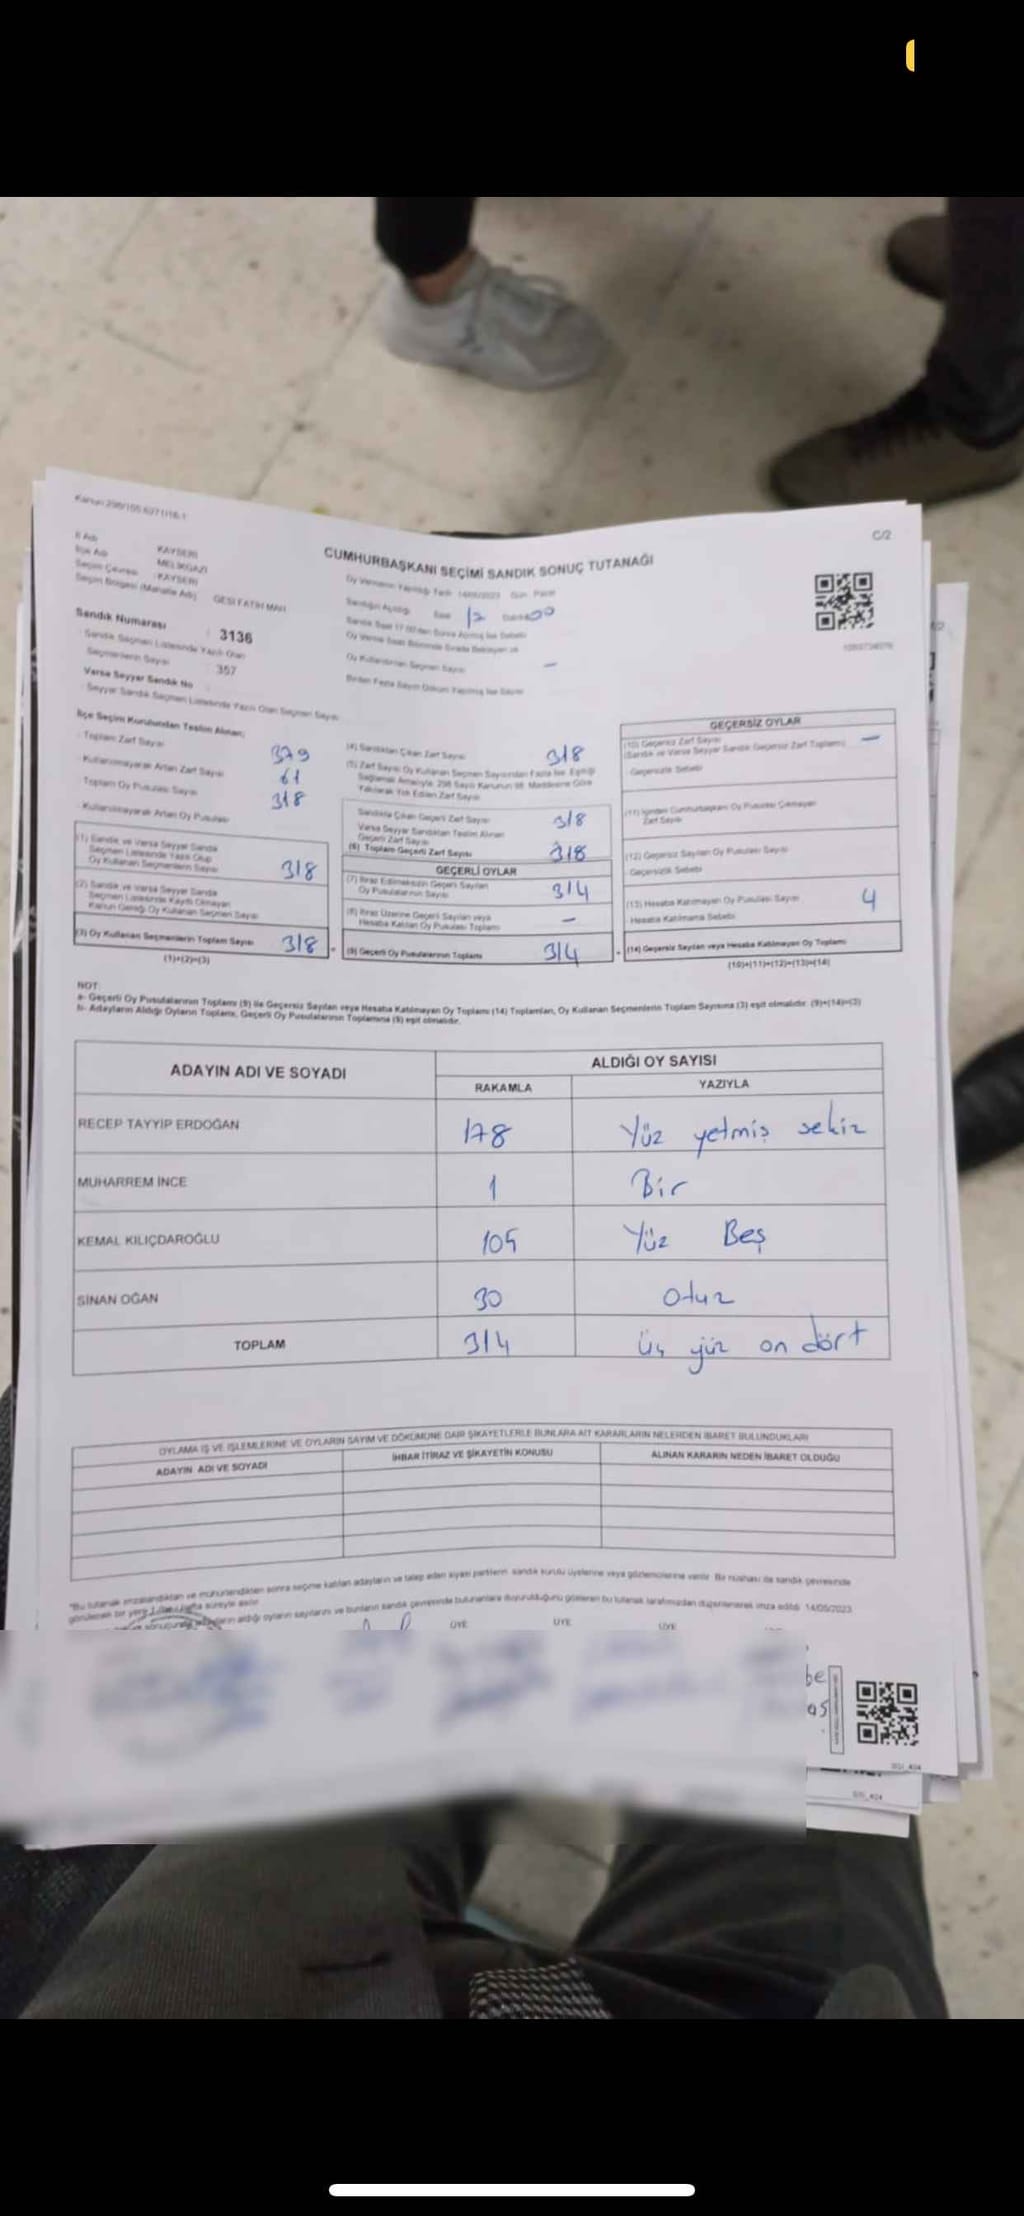 Kanun 298/105 6271/16-1
C/2
CUMHURBAŞKANI SEÇİMİ SANDIK SONUÇ TUTANAĞI
İl Adı KAYSERİ
İlçe Adı MELİKGAZİ
Seçim Çevresi KAYSERİ
Seçim Bölgesi (Mahalle Adı) GESİ FATİH MAH
Sandık Numarası : 3136
Sandık Seçmen Listesinde Yazılı Olan
Seçmenlerin Sayısı 357
Varsa Seyyar Sandık No
Seyyar Sandık Seçmen Listesinde Yazılı Olan Seçmen Sayısı
Oy Vermenin Yapıldığı Tarih 14/05/2023 Gün Pazar
Sandığın Açıldığı Saat 17 Dakika 00
Oy Kullandırılan Seçmen Sayısı —
Birden Fazla Sayım Döküm Yapılmış İse Sayısı
İlçe Seçim Kurulundan Teslim Alınan;
- Toplam Zarf Sayısı 379
- Kullanılmayarak Artan Zarf Sayısı 61
- Toplam Oy Pusulası Sayısı 318
- Kullanılmayarak Artan Oy Pusulası
(1) Sandık ve Varsa Seyyar Sandık
Seçmen Listesinde Yazılı Olup
Oy Kullanan Seçmenlerin Sayısı 318
(2) Sandık ve Varsa Seyyar Sandık
Seçmen Listesinde Kayıtlı Olmayan
Kanun Gereği Oy Kullanan Seçmen Sayısı
(3) Oy Kullanan Seçmenlerin Toplam Sayısı 318
(1)+(2)=(3)
(4) Sandıktan Çıkan Zarf Sayısı 318
(5) Zarf Sayısı Oy Kullanan Seçmen Sayısından Fazla İse, Eşitliği
Sağlamak Amacıyla, 298 Sayılı Kanunun 98. Maddesine Göre
Yakılarak Yok Edilen Zarf Sayısı
Sandıkta Çıkan Geçerli Zarf Sayısı 318
Varsa Seyyar Sandıktan Teslim Alınan
Geçerli Zarf Sayısı
(6) Toplam Geçerli Zarf Sayısı 318
GEÇERLİ OYLAR
(7) İtiraz Edilmeksizin Geçerli Sayılan
Oy Pusulalarının Sayısı 314
(8) İtiraz Üzerine Geçerli Sayılan veya
Hesaba Katılan Oy Pusulası Toplamı —
(9) Geçerli Oy Pusulalarının Toplamı 314
GEÇERSİZ OYLAR
(10) Geçersiz Zarf Sayısı —
(Sandık ve Varsa Seyyar Sandık Geçersiz Zarf Toplamı)
- Geçersizlik Sebebi
(11) İçinden Cumhurbaşkanı Oy Pusulası Çıkmayan
Zarf Sayısı
(12) Geçersiz Sayılan Oy Pusulası Sayısı
- Geçersizlik Sebebi
(13) Hesaba Katılmayan Oy Pusulası Sayısı 4
- Hesaba Katılmama Sebebi
(14) Geçersiz Sayılan veya Hesaba Katılmayan Oy Toplamı
(10)+(11)+(12)+(13)=(14)
NOT:
a- Geçerli Oy Pusulalarının Toplamı (9) ile Geçersiz Sayılan veya Hesaba Katılmayan Oy Toplamı (14) Toplamları, Oy Kullanan Seçmenlerin Toplam Sayısına (3) eşit olmalıdır. (9)+(14)=(3)
b- Adayların Aldığı Oyların Toplamı, Geçerli Oy Pusulalarının Toplamına (9) eşit olmalıdır.
ADAYIN ADI VE SOYADI
ALDIĞI OY SAYISI
RAKAMLA YAZIYLA
RECEP TAYYİP ERDOĞAN 178 Yüz yetmiş sekiz
MUHARREM İNCE 1 Bir
KEMAL KILIÇDAROĞLU 105 Yüz Beş
SİNAN OĞAN 30 Otuz
TOPLAM 314 üç yüz on dört
OYLAMA İŞ VE İŞLEMLERİNE VE OYLARIN SAYIM VE DÖKÜMÜNE DAİR ŞİKAYETLERLE BUNLARA AİT KARARLARIN NELERDEN İBARET BULUNDUKLARI
ADAYIN ADI VE SOYADI
İHBAR İTİRAZ VE ŞİKAYETİN KONUSU
ALINAN KARARIN NEDEN İBARET OLDUĞU
"Bu tutanak imzalandıktan ve mühürlendikten sonra seçime katılan adayların ve talep eden siyasi partilerin sandık kurulu üyelerine veya gözlemcilerine verilir. Bir nüshası da sandık çevresinde
görülecek bir yere 1 (bir) hafta süreyle asılır.
adayların aldığı oyların sayılarını ve bunların sandık çevresinde bulunanlara duyurulduğunu gösteren bu tutanak tarafımızdan düzenlenerek imza edildi. 14/05/2023
ÜYE ÜYE ÜYE